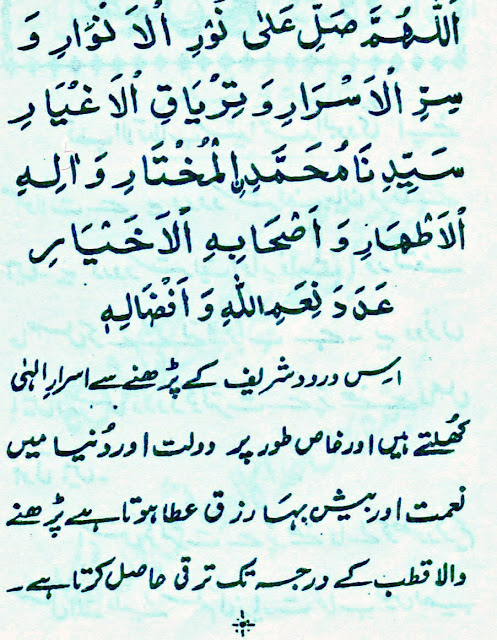 اَللّٰهُمَّ صَلِّ عَلٰى نُوْرِ الْاَنْوَارِ وَ
سِرِّ الْاَسْرَارِ وَتِرْيَاقِ الْاَغْيَارِ
سَيِّدِنَا مُحَمَّدِنِ الْمُخْتَارِ وَاٰلِهِ
الْاَطْهَارِ وَاَصْحَابِهِ الْاَخْيَارِ
عَدَدَ نِعَمِ اللّٰهِ وَاَفْضَالِهِ
اِس درود شریف کے پڑھنے سے اسرارِ الٰہی
کُھلتے ہیں اور خاص طور پر دولت اور دُنیا میں
نعمت اور بیش بہا رزق عطا ہوتا ہے پڑھنے
والا قطب کے درجہ تک ترقی حاصل کرتا ہے۔